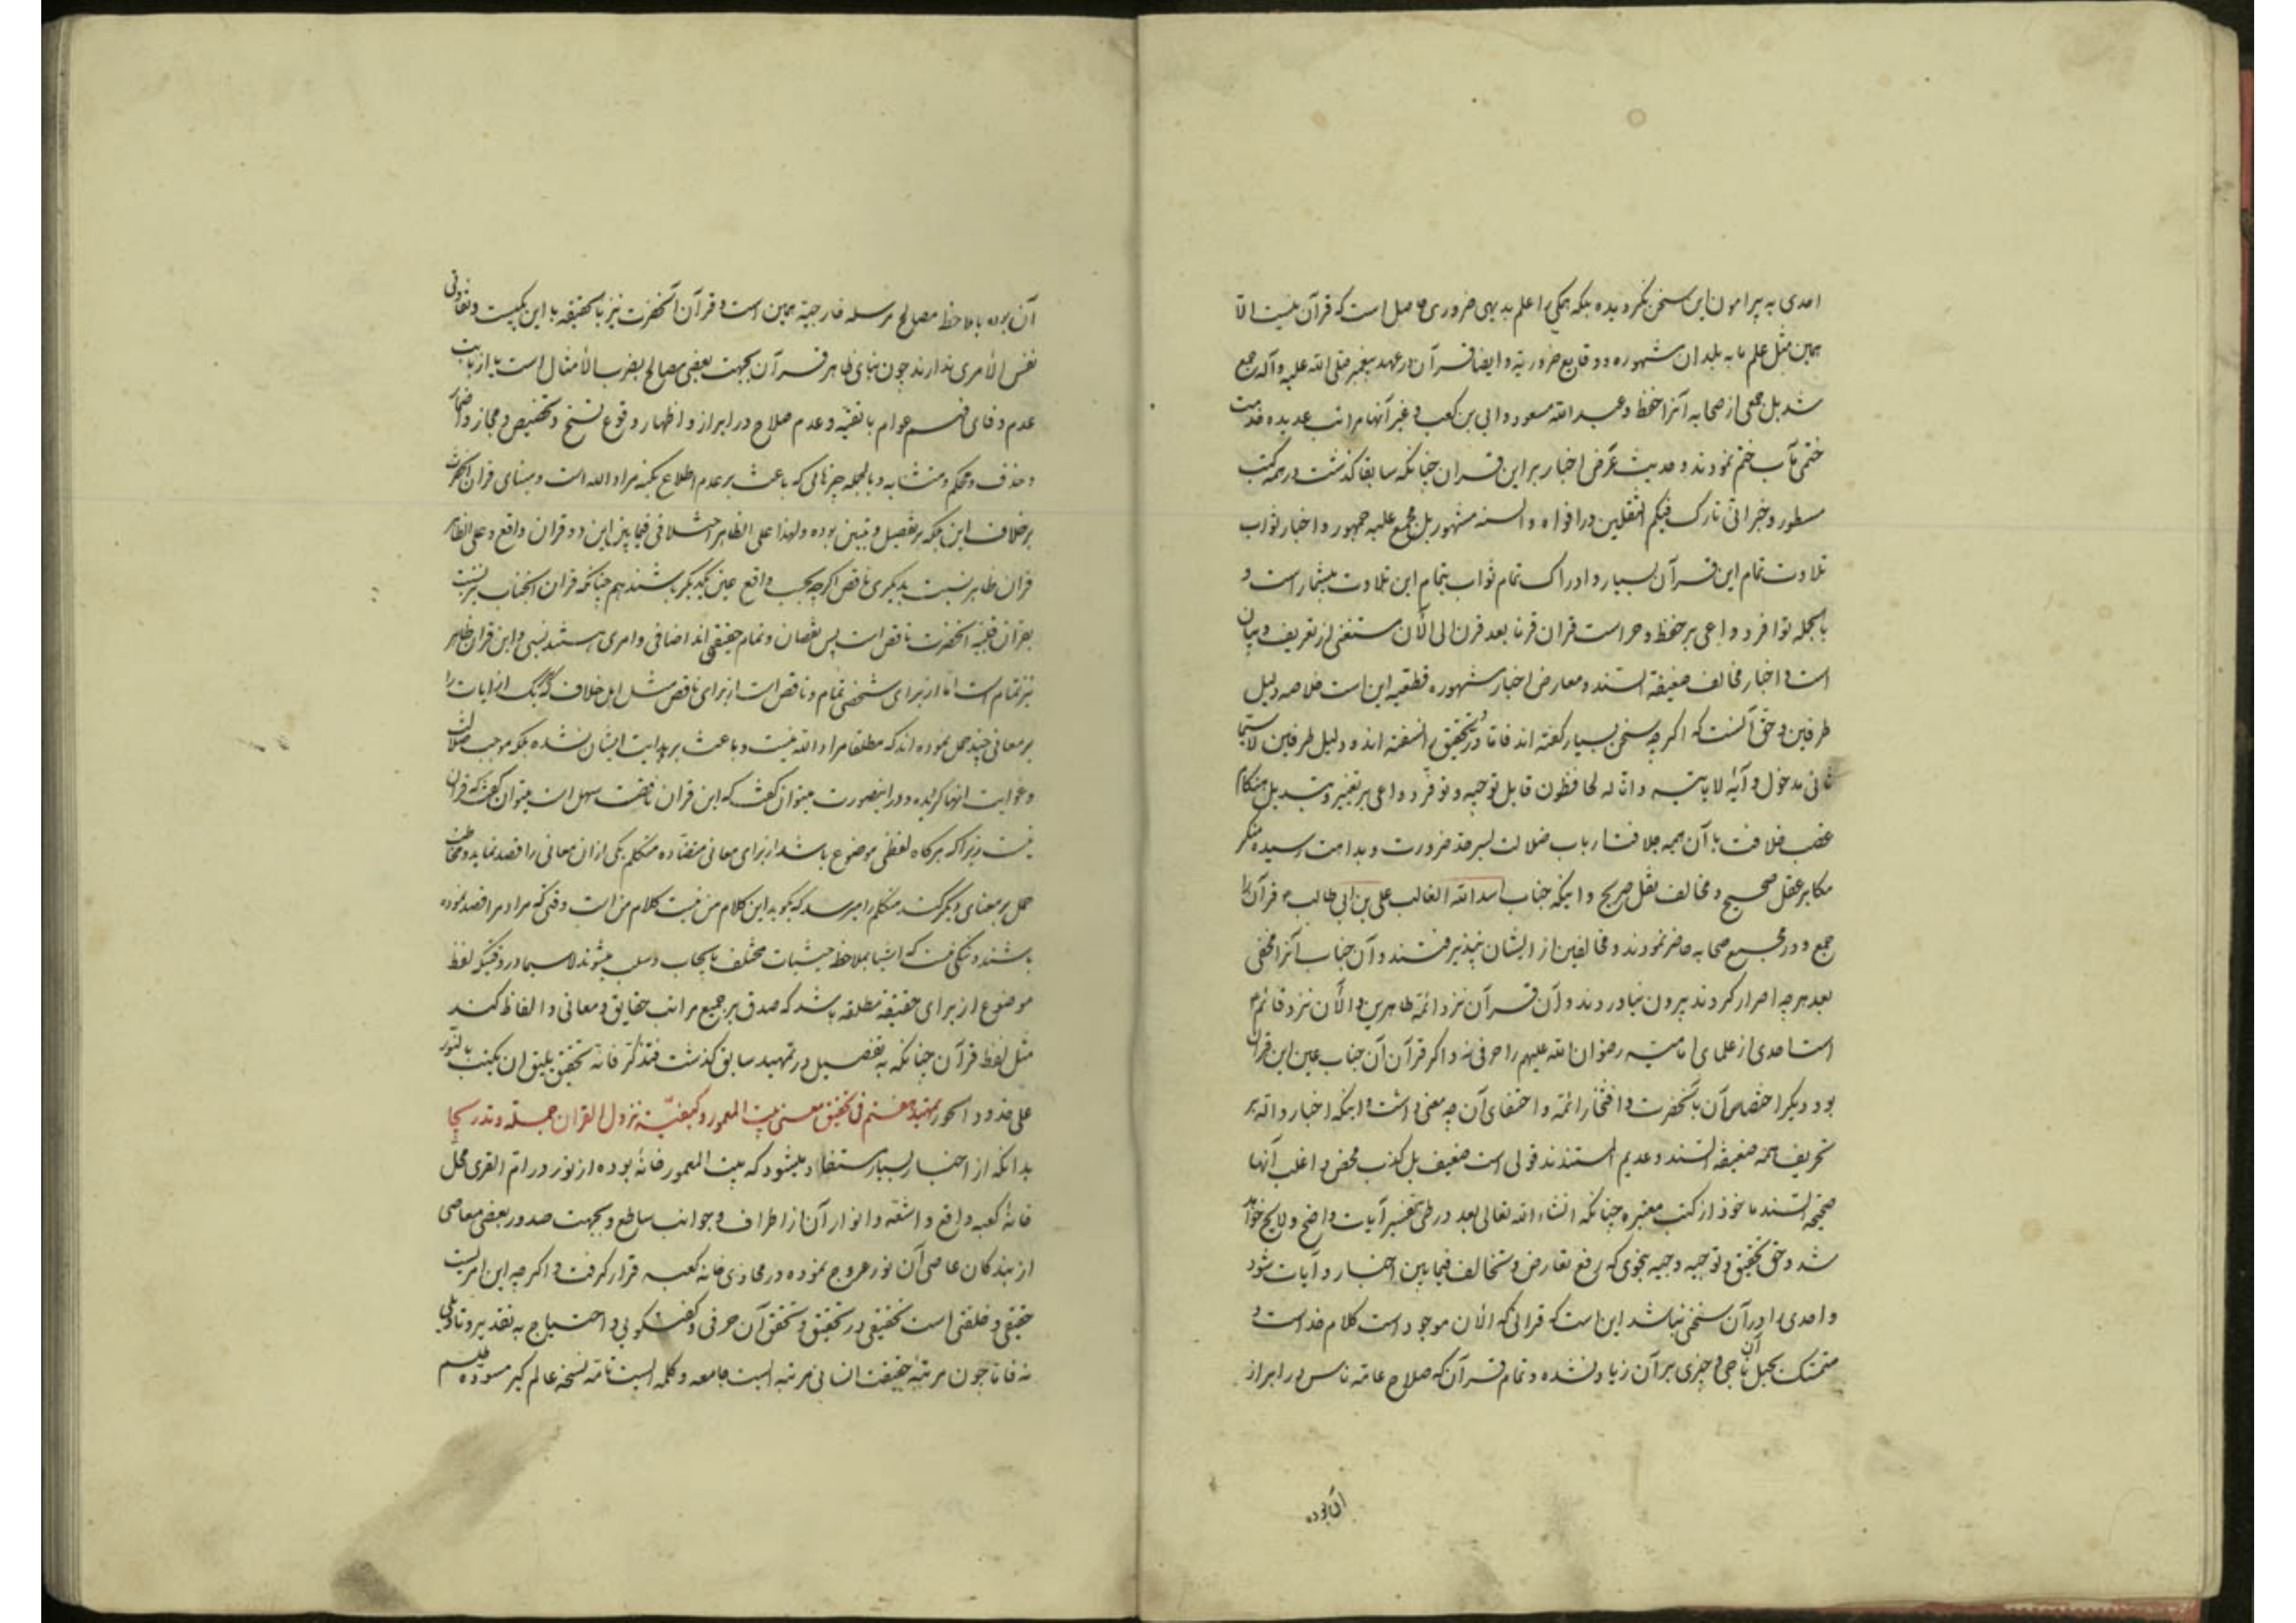 احدی به پیرامون این سخن نگردیده بلکه همگی را علم بدیهی ضروری حاصل است که قرآن نیست الا
همین مثل علم ما به بلدان مشهوره و وقایع ضروریة و ایضا قرآن در عهد پیغمبر صلی الله علیه و آله جمع
شد بل جمعی از صحابه آنرا حفظ و عبد الله مسعود و ابی بن کعب و غیر آنها مراتب عدیده خدمت
ختمی مآب ختم نمودند و حدیث عرض اخبار بر این قران چنانکه سابقا گذشت در همه کتب
مسطور و خبر انی تارک فیکم الثقلین در افواه و السنه مشهور بل مجمع علیه جمهور و اخبار ثواب
تلاوت تمام این قرآن بسیار و ادراک تمام ثواب بتمام این تلاوت بیشمار است و
بالجمله توافر دواعی بر حفظ و حراست قران قرنا بعد قرن الی الآن مستغنی از تعریف و بیان
است و اخبار مخالف ضعیفة السند و معارض اخبار مشهوره قطعیه این است خلاصه دلیل
طرفین و حق آنست که اگر چه سخن بسیار گفته اند فاما در تحقیق نسفته اند و دلیل طرفین لا سیما
ثانی مدخول و آیهٔ لا یاتیه و انا له لحافظون قابل توجیه و توفر دواعی بر تغییر و تبدیل هنگام
غصب خلافت با آن همه جلافت ارباب ضلالت بسرحد ضرورت و بداهت رسیده منکر
مکابر عقل صحیح و مخالف نقل صریح و اینکه جناب اسد الله الغالب علی بن ابی طالب ع قرآن را
جمع و در مجمع صحابه حاضر نمودند و مخالفین از ایشان نپذیرفتند و آن جناب آنرا مخفی
بعد هر چه اصرار کردند بیرون نیاوردند و آن قرآن نزد ائمهٔ طاهرین و الآن نزد قائم ع
است احدی از علمای امامیه رضوان الله علیهم را حرفی نه و اگر قرآن آن جناب عین این قران
بود دیگر اختصاص آن بآنحضرت و افتخار ائمة و اختفای آن چه معنی داشت و اینکه اخبار داله بر
تحریف همه ضعیفة السند و عدیم المستندند قولی است ضعیف بل کذب محض و اغلب آنها
صحیحة السند ماخوذ از کتب معتبره چنانکه انشاء الله تعالی بعد در طی تفسیر آیات واضح و لایح خواهد
شد و حق تحقیق و توجیه وجیه بنحوی که رفع تعارض و تخالف فیما بین اخبار و آیات شود
و احدی را در آن سخنی نباشد این است که قرانی که الان موجود است کلام خداست و
متمسک بحبل آن ناجی و چیزی بر آن زیاد نشده و تمام قرآن که صلاح عامه ناس در ابراز
آن بوده
آن بوده بملاحظ مصالح مرسله خارجیة همین است و قرآن آنحضرت نیز بالحقیقه با این یکیست و تفاوتی
نفس الأمری ندارند چون بنای ظاهر قرآن بجهت بعضی مصالح بضرب الأمثال است یا از بابت
عدم وفای فهم عوام یا تقیّه و عدم صلاح در ابراز و اظهار وقوع نسخ و تخصیص و مجاز و اضمار
و حذف و محکم و متشابه و بالجمله چیزهائی که باعث بر عدم اطلاع بکنه مراد الله است و مبنای قران آنحضرت
برخلاف این بلکه بر تفصیل و تبیین بوده و لهذا علی الظاهر اختلافی فیما بین این دو قران واقع و علی الظاهر
قران ظاهر نسبت بدیگری ناقص اگر چه بحسب واقع عین یکدیگر باشند هم چنانکه قران آنجناب بر نسبت
بقران حقیقة آنحضرت ناقص است پس نقصان و تمام حقیقی اند اضافی و امری هستند نسبی و این قران ظاهر
نیز تمام است اما از برای شخص تمام و ناقص است از برای ناقص مثل اهل خلاف که هر یک از آیات را
بر معانی چند حمل نموده اند که مطلقا مراد الله نیست و باعث بر هدایت ایشان نشده بلکه موجب ضلالت
و غوایت آنها گردیده و در اینصورت میتوان گفت که این قران ناقصست سهل است میتوان گفت که قران
نیست زیرا که هرگاه لفظی موضوع باشد از برای معانی متضاده متکلم یکی از آن معانی را قصد نماید و مخاطب
حمل بر معنای دیگر کند متکلم را میرسد که بگوید این کلام من نیست کلام من است وقتی که مراد مرا قصد نموده
باشند و شکی نیست که اشیا بملاحظ حیثیات مختلف بایجاب و سلب میشوند لا سیما در وقتیکه لفظ
موضوع از برای حقیقة مطلقه باشد که صدق بر جمیع مراتب حقایق و معانی و الفاظ کند
مثل لفظ قرآن چنانکه به تفصیل در تمهید سابق گذشت فتذکر فانه تحقیق یلیق ان یکتب بالنور
علی خدود الحور تمهید هفتم فی تحقیق معنی بیت المعمور و کیفیّة نزول القران جملة و تدریجا
بدانکه از اخبار بسیار مستفاد میشود که بیت المعمور خانهٔ بوده از نور در ام القری محل
خانهٔ کعبه واقع و اشعه و انوار آن از اطراف و جوانب ساطع و بجهت صدور بعضی معاصی
از بندگان عاصی آن نور عروج نموده در محاذی خانه کعبه قرار گرفت و اگر چه این امریست
حقیقی و خلقی است تحقیقی در تحقیق و تحقق آن حرفی و گفتگوئی و احتیاج به تقدیر و تاویلی
نه فاما چون مرتبهٔ حقیقت انسانی مرتبه ایست جامعه و کلمه ایست تامه نسخه عالم کبر مسوده